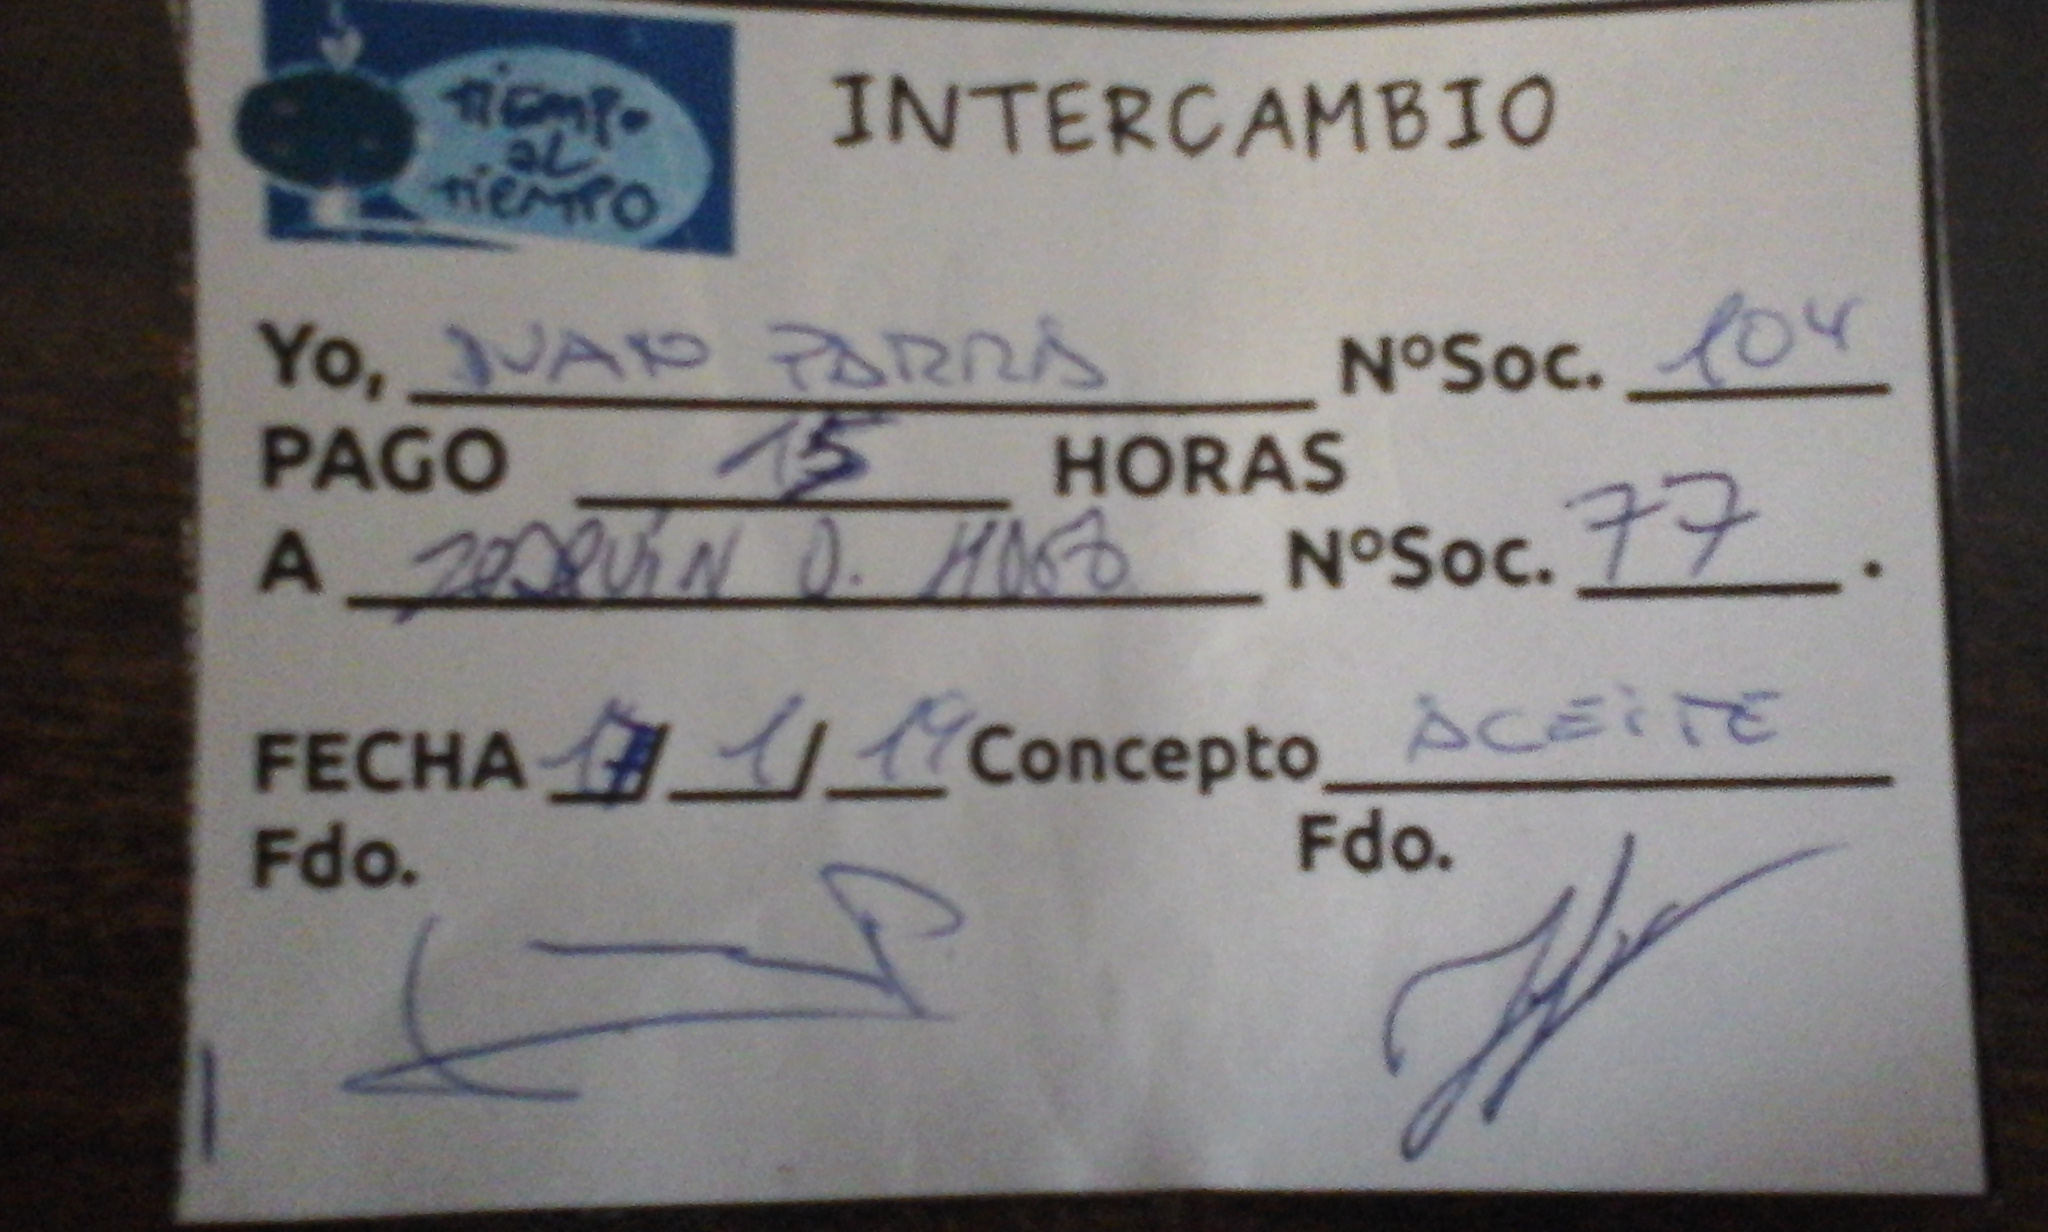 tiempo
al
tiempo
INTERCAMBIO
Yo, JUAN PARRA NºSoc. 104
PAGO 15 HORAS
A JOAQUÍN O. NºSoc. 77.
FECHA 17/1/19 Concepto ACEITE
Fdo. Fdo.